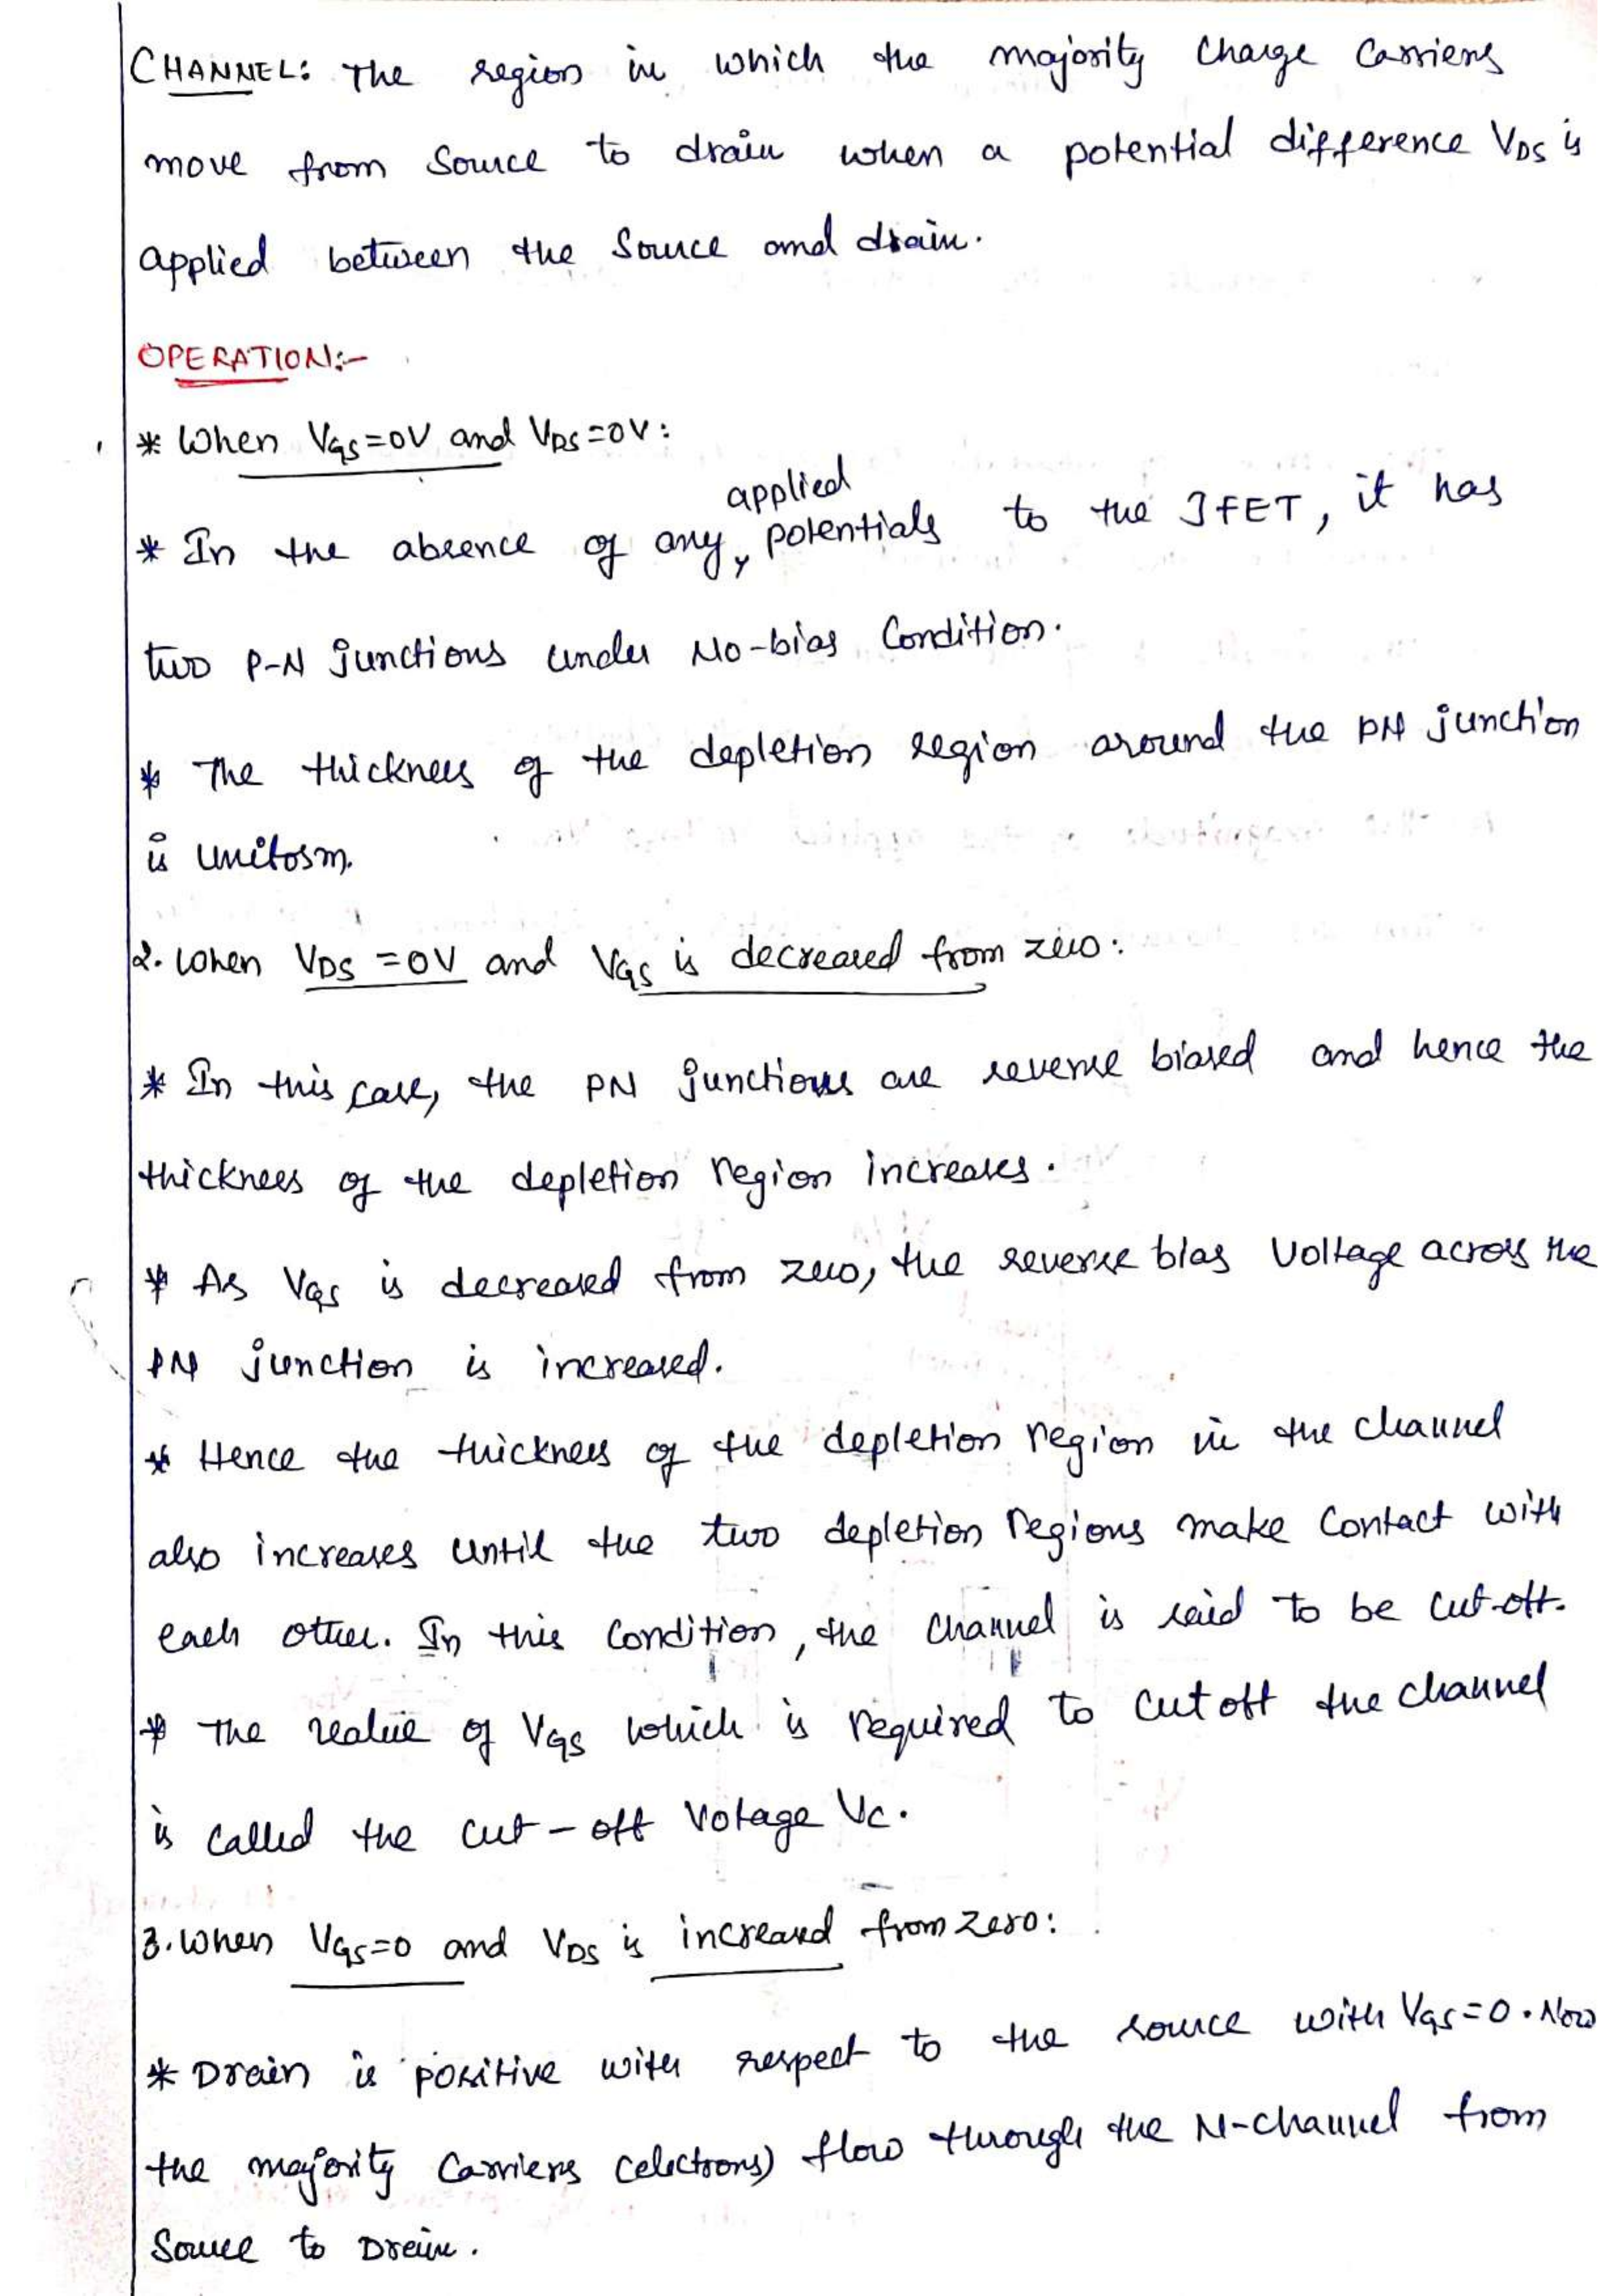 CHANNEL: The region in which the majority charge carriers
move from source to drain when a potential difference VDS is
applied between the source and drain.
OPERATION:-
* When VGS=0V and VDS=0V:
applied
* In the absence of any potentials to the JFET, it has
two P-N junctions under No-bias Condition.
* The thickness of the depletion region around the PN junction
is uniform.
2. when VDS =0V and VGS is decreased from zero:
* In this case, the PN junctions are reverse biased and hence the
thickness of the depletion region increases.
* As VGS is decreased from zero, the reverse bias voltage across the
PN junction is increased.
* Hence the thickness of the depletion region in the channel
also increases until the two depletion regions make contact with
each other. In this condition, the channel is said to be cut-off.
* The value of VGS which is required to cutoff the channel
is called the cut-off Votage VC.
3. When VGS=0 and VDS is increased from zero:
* Drain is positive with respect to the source with VGS=0. Now
the majority carriers (electrons) flow through the N-channel from
Source to Drain.